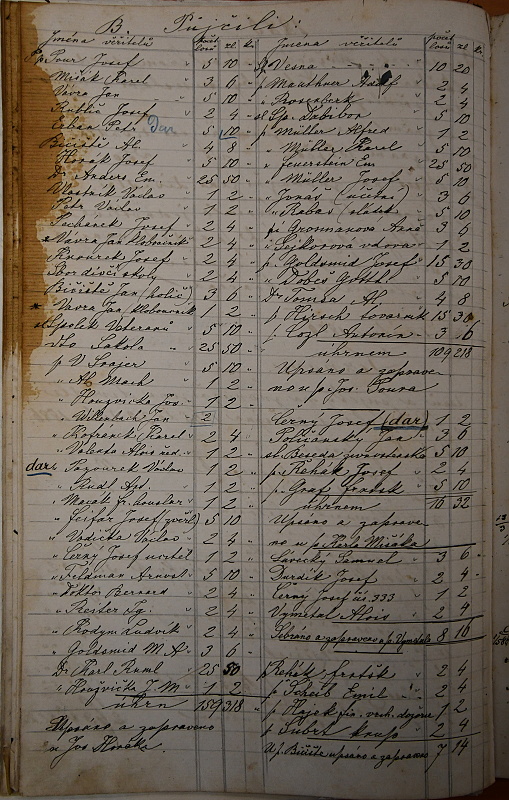 B. Půjčili:
Jména věřitelů počet losů zl. kr.
p. Pour Josef 5 10
Mišák Karel 3 6
Vávra Jan 5 10
Kubků Josef 2 4
Erban Petr dar 5 10
Bičiště Al. 4 8
Horák Josef 5 10
Dr. Anders Em. 25 50
Vlastník Václav 1 2
Petr Václav 1 2
Pechánek Josef 2 4
Vávra Jan kloboučník 2 4
Knourek Josef 2 4
Sbor divčí školy 2 4
Bičiště Jan (holič) 3 6
Vávra Jan kloboučník 1 2
Spolek Veteránů 5 10
Sokola 25 50
p. V. Šrajer 5 10
" Al. Mach 1 2
" Houzvička Jos. 1 2
" Willenbach Jan 2
" Kofránek Karel 2 4
" Valenta Alois 1 2
dar Pazourek Václav 1 2
" Rudl Ant. 1 2
" Macák fr. 1 2
" Feifar Josef 5 10
" Vodička Václav 2 4
" Černý Josef učitel 1 2
" Feldman Arnošt 5 10
" Doktor Bernard 2 4
" Kester Ig. 2 4
" Rodym Ludvík 2 4
" Goldsmid M. A. 3 6
Dr. Karl Ruml 25 50
" Houžvička F. M. 1 2
úhrn 159 318
Upsáno a zapraveno
u Jos. Horáka.
Jména věřitelů počet losů zl. kr.
p. Vesna 10 20
p. Mauthner Adolf 2 4
" Rosenbeck 2 4
Sp. Dalibor 5 10
p. Müller Alfred 1 2
" Müller Karel 5 10
" Feuerstein Em. 25 50
" Müller Josef 5 10
" Jonáš (účetní) 3 6
" Rabas (sládek) 5 10
Grossmanova Anna 3 6
" Sejkorova vdova 1 2
p. Goldsmid Josef 15 30
" Dobeš Gotth. 5 10
Dr. Tomsa Al. 4 8
p. Hirsch továrník 15 30
p. Cogl Antonín 3 6
úhrnem 109 218
Upsáno a zaprave-
no u p. Jos. Poura
Černý Josef (dar) 1 2
Poličanský Jan 3 6
sl. Beseda 5 10
p. Řehák Josef 2 4
p. Graf 5 10
úhrnem 16 32
Upsáno a zaprave-
no u p. Karl Mišáka
Lavecký Samuel 3 6
Durdík Josef 2 4
Černý Josef čís. 333 1 2
Vymetal Alois 2 4
Sebráno a zapraveno u p. Vymetala 8 16
p. Řehák 2 4
p. Scheib Emil 2 4
p. Hájek 1 2
p. Šubrt 2 4
U p. Bičiště upsáno a zapraveno 7 14